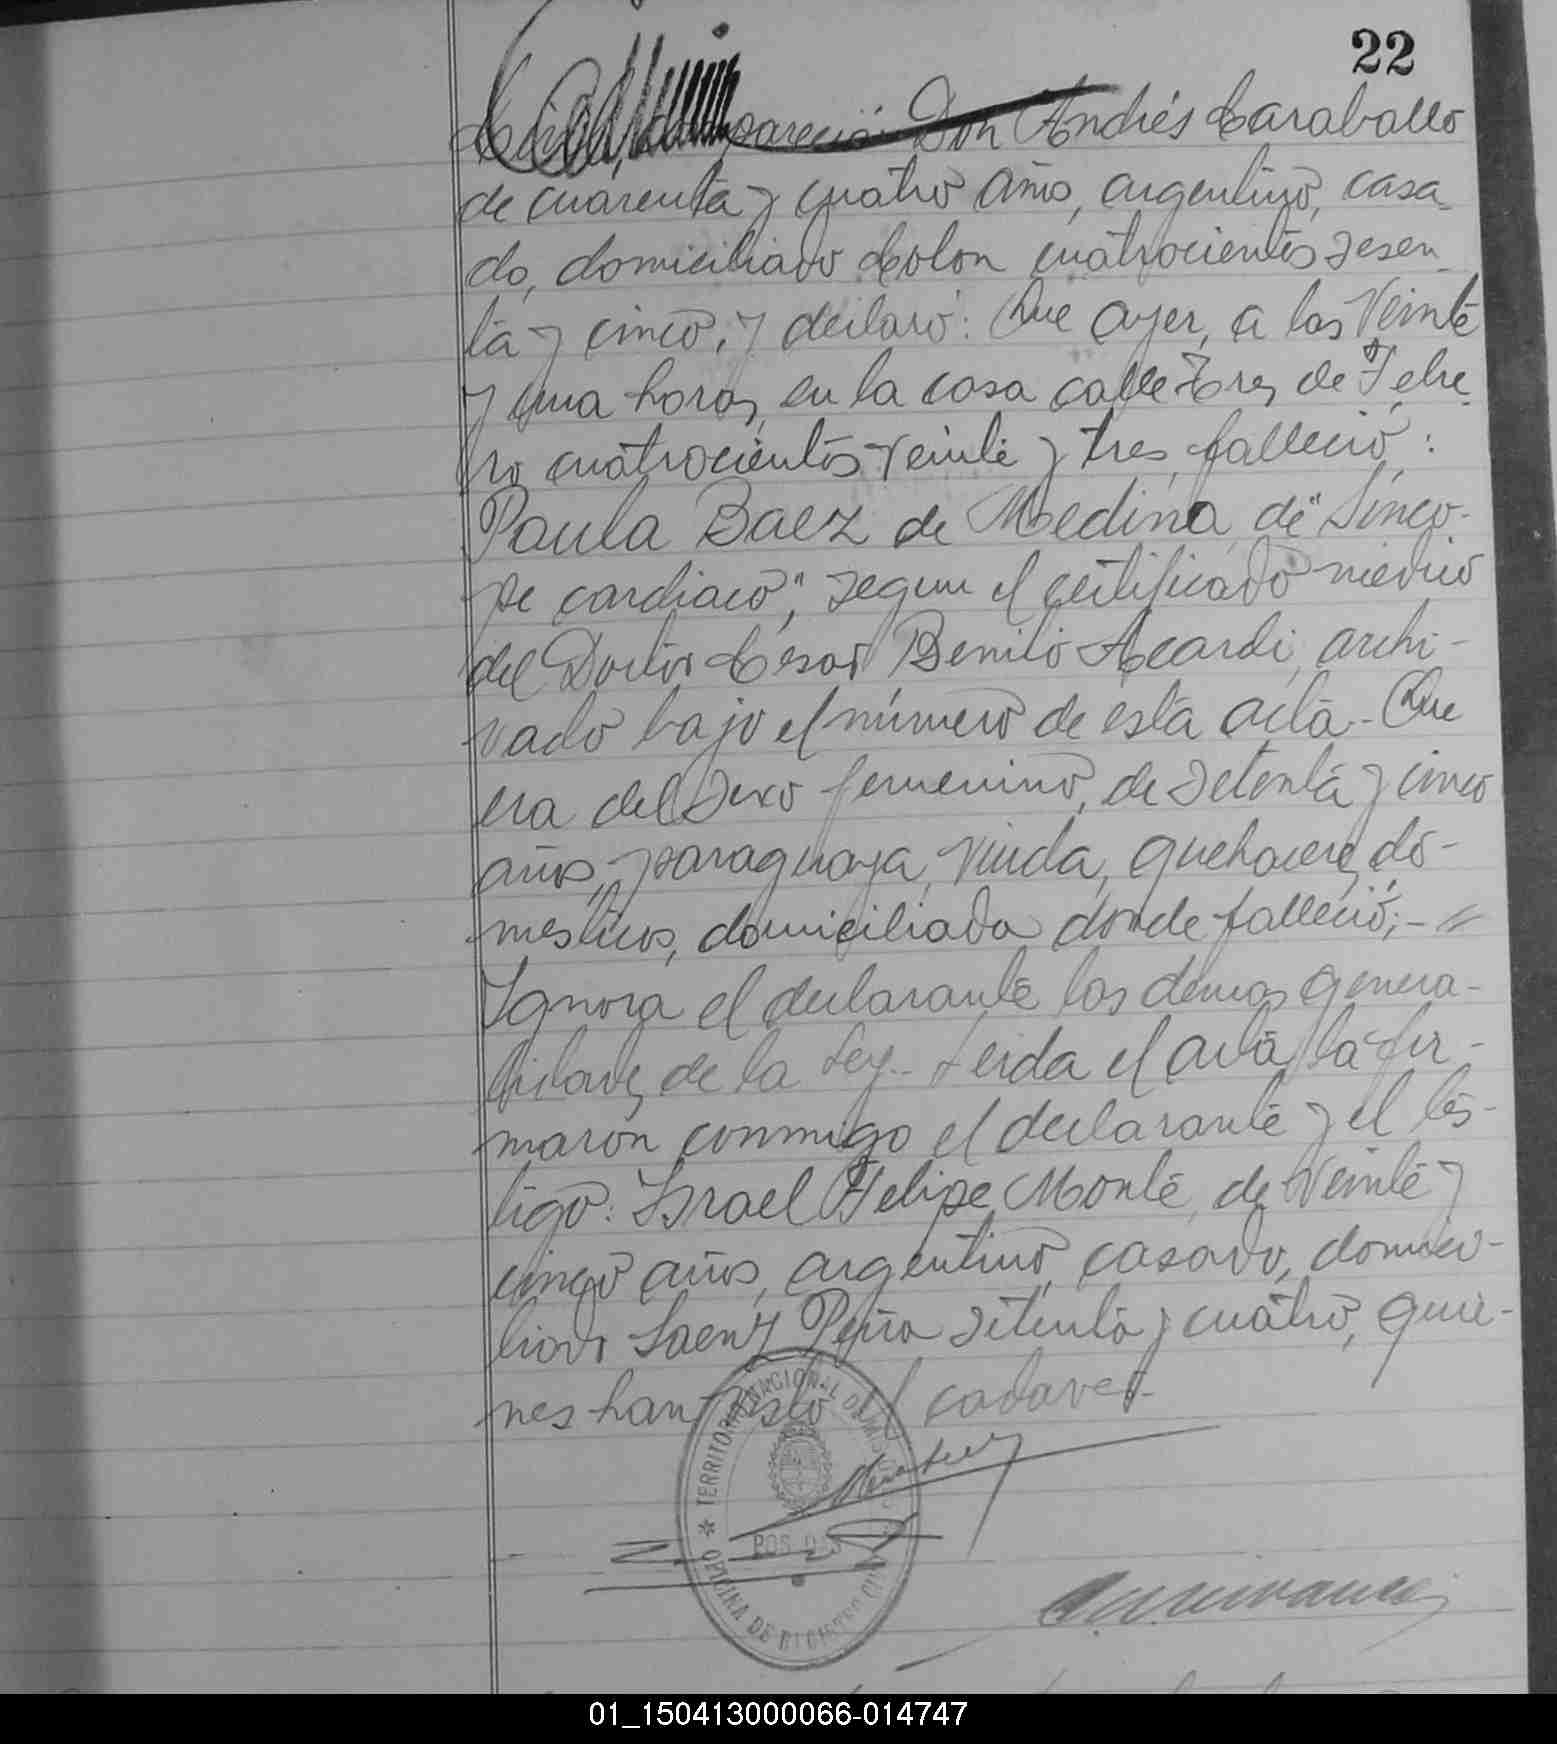 22
compareció: Don Andrés Caraballo
de cuarenta y cuatro años, argentino, casa-
do, domiciliado Colon cuatrocientos sesen-
ta y cinco, y declaró: Que ayer, a las veinte
y una horas, en la casa calle Tres de Febre-
ro cuatrocientos veinte y tres, falleció:
Paula Baez de Medina, de "Sinco-
pe cardiaco", segun el certificado medico
del Doctor César Benito Acardi, archi-
vado bajo el número de esta acta.- Que
era del sexo femenino, de setenta y cinco
años, paraguaya, viuda, quehaceres do-
mesticos, domiciliada donde falleció;-
Ignora el declarante las demas genera-
lidades de la Ley.- Leida el acta, la fir-
maron conmigo el declarante y el tes-
tigo: Israel Felipe Monte, de veinte y
cinco años, argentino, casado, domici-
liado Saenz Peña setenta y cuatro, quie-
nes han visto el cadaver.-
TERRITORIO NACIONAL DE MISIONES
POSADAS
OFICINA DE REGISTRO CIVIL
01_150413000066-014747